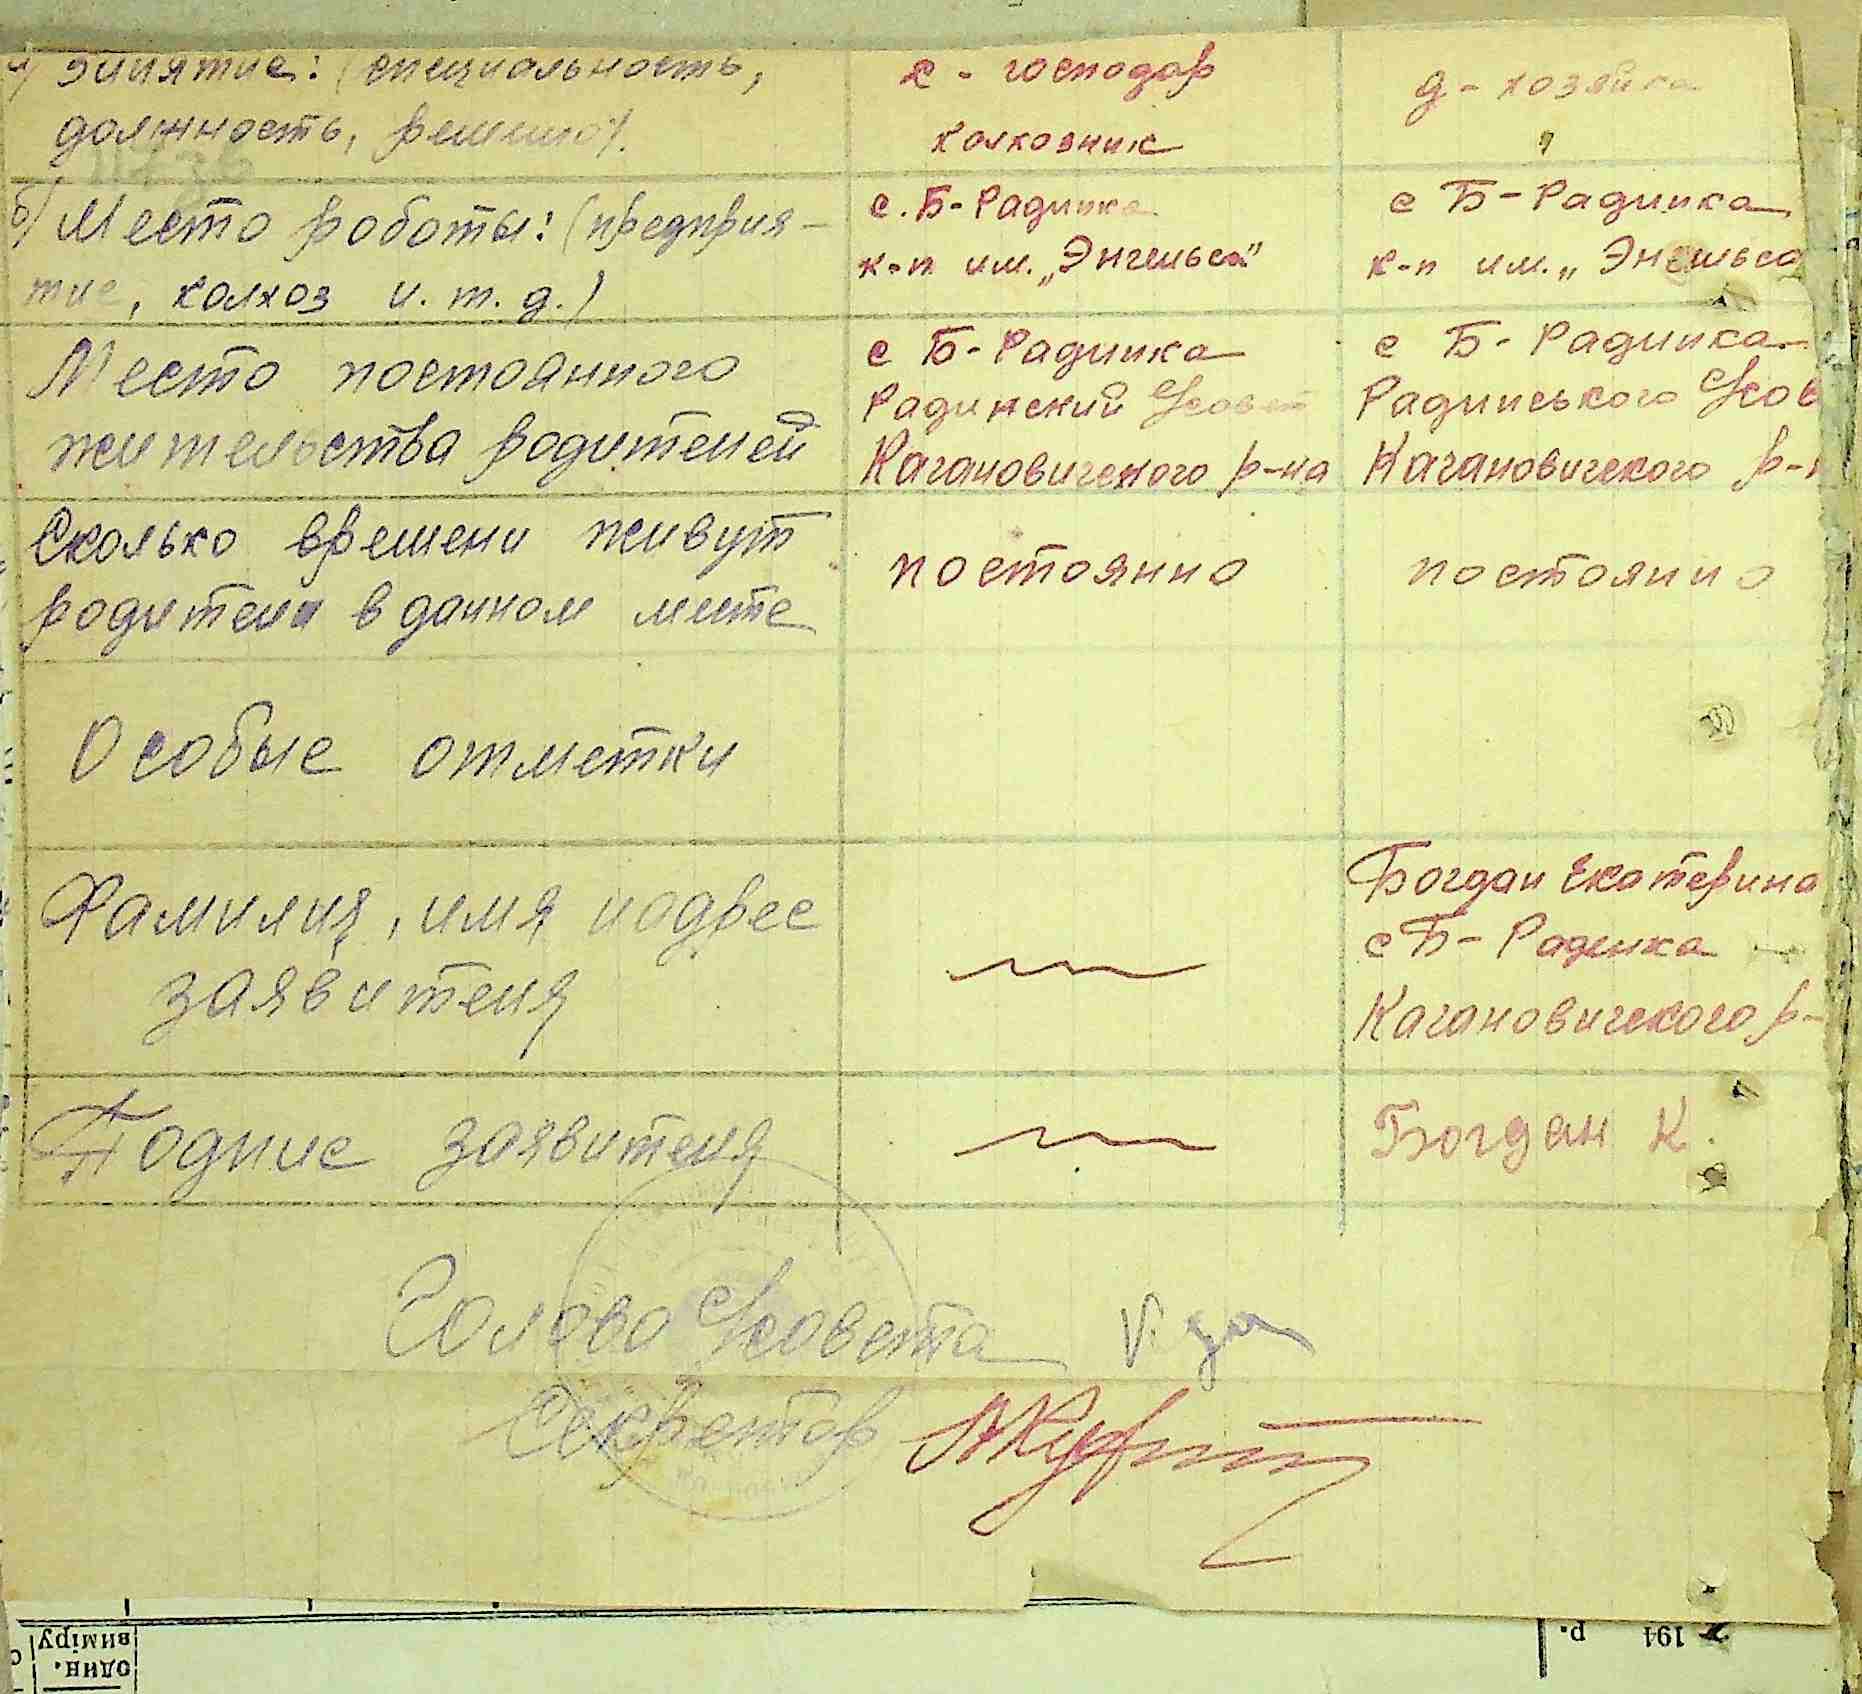 а) Занятие: (специальность,
должность, ремесло).
х - господар
колхозник
д - хозяйка
"
б) Место роботы: (предприя-
тие, колхоз и. т. д.)
с. Б-Радинка
к-п им. „Энгельса"
с Б-Радинка
к-п им. „Энгельса
Место постоянного
жительства родителей
с Б-Радинка
Радинский Ссовет
Кагановического р-на
с Б-Радинка
Радинського Ссов
Кагановического р-н
Сколько времени живут
родители в данном месте
постоянно
постоянно
Особые отметки
Фамилия, имя и одрес
заявителя
Богдан Екатерина
с Б-Радинка
Кагановического р-
Подпис заявителя
Богдан К.
Голова Ссовета
Секретар
один.
виміру
194 р.